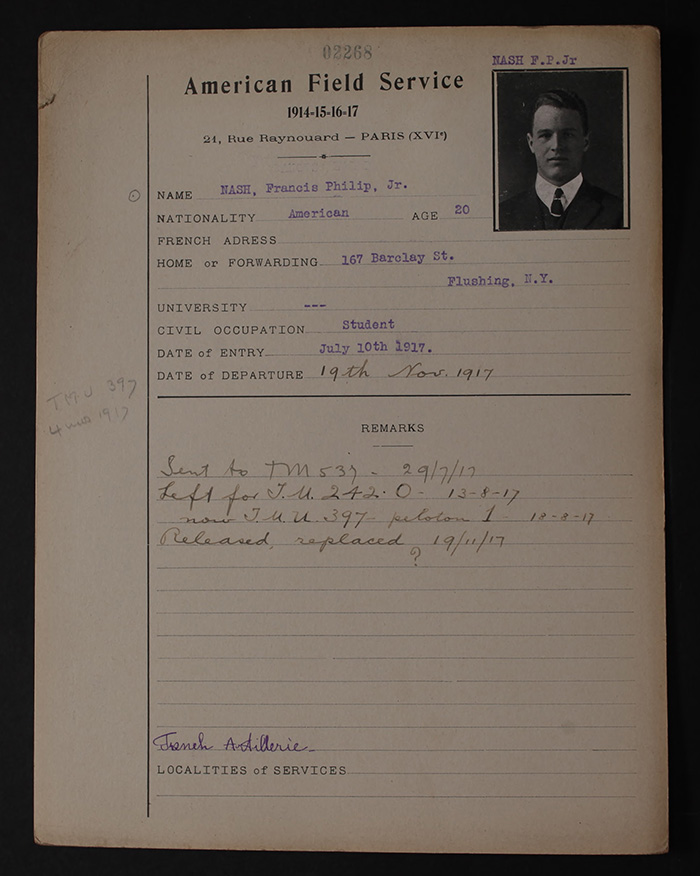 02268
NASH F.P.Jr
American Field Service
1914-15-16-17
21, Rue Raynouard — PARIS (XVIe)
NAME NASH, Francis Philip, Jr.
NATIONALITY American AGE 20
FRENCH ADRESS
HOME or FORWARDING 167 Barclay St.
Flushing, N.Y.
UNIVERSITY ---
CIVIL OCCUPATION Student
DATE of ENTRY July 10th 1917.
DATE of DEPARTURE 19th Nov. 1917
TMU 397
4 1917
REMARKS
Sent to TM 537 - 29/7/17
Left for T.M. 242.O - 13-8-17
now T.M.U. 397 - peloton 1 - 18-8-17
Released, replaced ? 19/11/17
French Artillerie
LOCALITIES of SERVICES